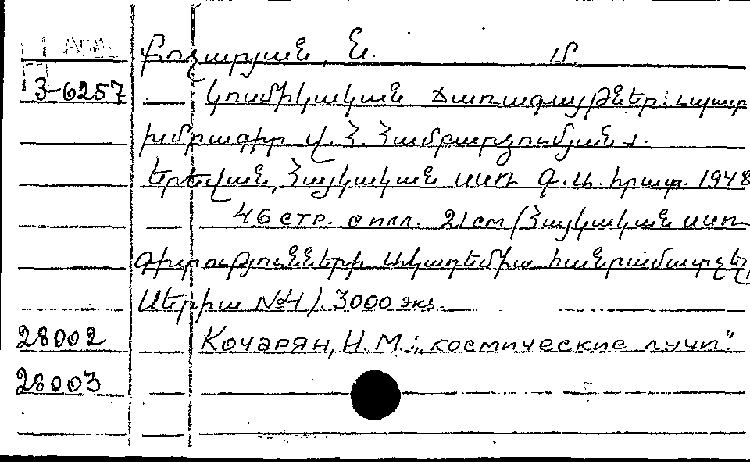 Քոչարյան, Ն. Մ.
3-6257 Կոսմիկական ճառագայթներ: պատ
խմբագիր Վ. Հ. Համբարձումյան:
Երևան, Հայկական ՍՍՌ Գ. Ա. հրատ. 1948
46 стр. с илл. 21 см (Հայկական ՍՍՌ
Գիտությունների Ակադեմիա հանրամատչելի
սերիա №4). 3000 экз.
28002 Кочарян, Н. М.: „космические лучи"
28003